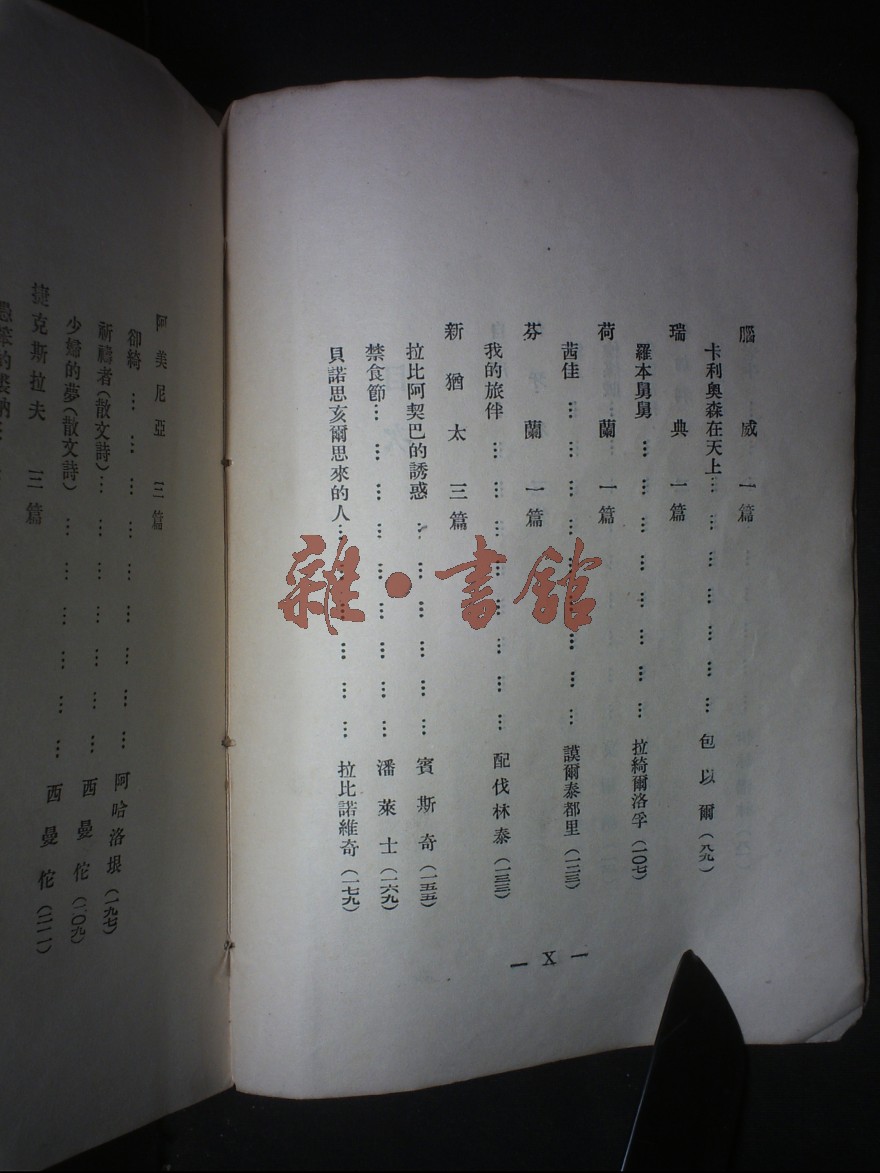 腦威 一篇
卡利奧森在天上… … … … … … … 包以爾(八九)
瑞典 一篇
羅本舅舅 … … … … … … … … 拉綺爾洛孚(一〇七)
荷蘭 一篇
茜佳 … … … … … … … … … 謨爾泰都里(一二三)
芬蘭 一篇
我的旅伴 … … … … … … … … 配伐林泰(一三三)
新猶太 三篇
拉比阿契巴的誘惑 … … … … … … 賓斯奇(一五五)
禁食節… … … … … … … … … 潘萊士(一六九)
貝諾思亥爾思來的人… … … … … … 拉比諾維奇(一七九)
— X —
阿美尼亞 三篇
卻綺 … … … … … … … … … 阿哈洛垠(一九七)
祈禱者(散文詩)… … … … … … … 西曼佗(二〇九)
少婦的夢(散文詩) … … … … … … 西曼佗(二一一)
捷克斯拉夫 三篇
愚笨的裘納
雜·書館